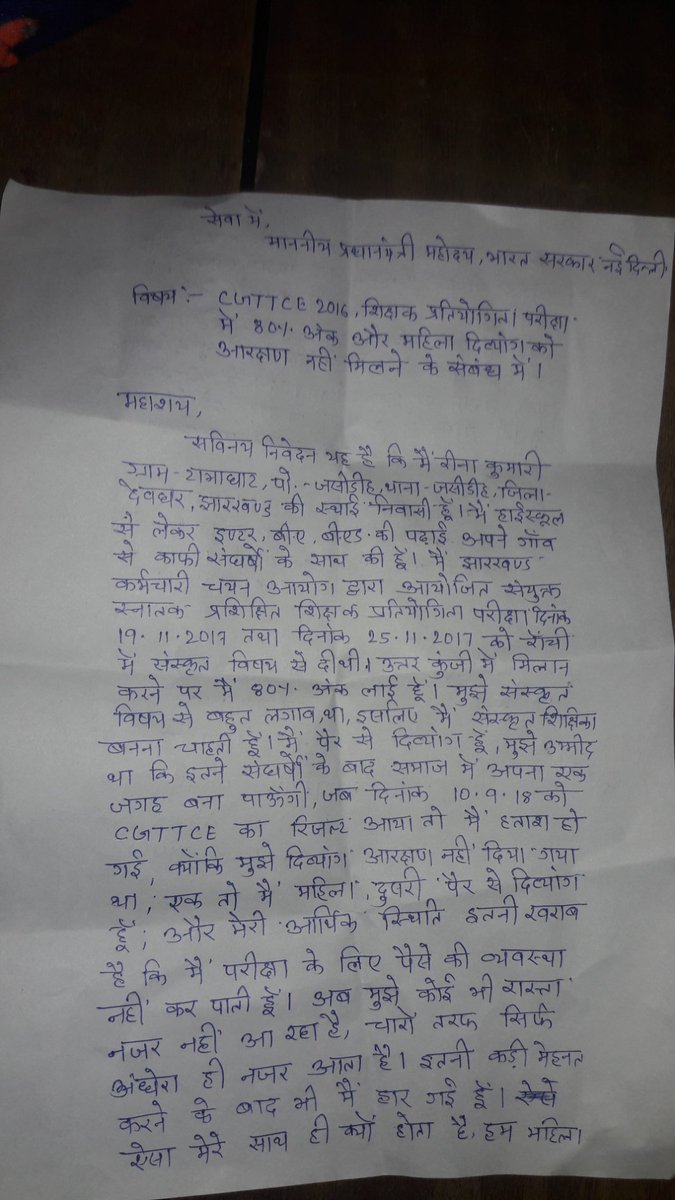 सेवा में,
माननीय प्रधानमंत्री महोदय, भारत सरकार नई दिल्ली
विषय :- CGTTCE 2016, शिक्षक प्रतियोगिता परीक्षा
में 80% अंक और महिला दिव्यांग को
आरक्षण नहीं मिलने के संबंध में।
महाशय,
सविनय निवेदन यह है कि मैं रीना कुमारी
ग्राम- पो.-जसीडीह, थाना-जसीडीह, जिला-
देवघर, झारखण्ड की स्थाई निवासी हूँ। मैं हाईस्कूल
से लेकर इण्टर, बीए, बीएड की पढ़ाई अपने गाँव
से काफी संघर्षों के साथ की हूँ। मैं झारखण्ड
कर्मचारी चयन आयोग द्वारा आयोजित संयुक्त
स्नातक प्रशिक्षित शिक्षक प्रतियोगिता परीक्षा दिनांक
19.11.2017 तथा दिनांक 25.11.2017 को राँची
में संस्कृत विषय से दी थी। उत्तर कुंजी में मिलान
करने पर मैं 80% अंक लाई हूँ। मुझे संस्कृत
विषय से बहुत लगाव था, इसलिए मैं संस्कृत शिक्षिका
बनना चाहती हूँ। मैं पैर से दिव्यांग हूँ, मुझे उम्मीद
था कि इतने संघर्षों के बाद समाज में अपना एक
जगह बना पाऊँगी, जब दिनांक 10.9.18 को
CGTTCE का रिजल्ट आया तो मैं हताश हो
गई, क्योंकि मुझे दिव्यांग आरक्षण नहीं दिया गया
था; एक तो मैं महिला, दुसरी पैर से दिव्यांग
हूँ; और मेरी आर्थिक स्थिति इतनी खराब
है कि मैं परीक्षा के लिए पैसे की व्यवस्था
नहीं कर पाती हूँ। अब मुझे कोई भी रास्ता
नजर नहीं आ रहा है, चारों तरफ सिर्फ
अंधेरा ही नजर आता है। इतनी कड़ी मेहनत
करने के बाद भी मैं हार गई हूँ।
ऐसा मेरे साथ ही क्यों होता है, हम महिला